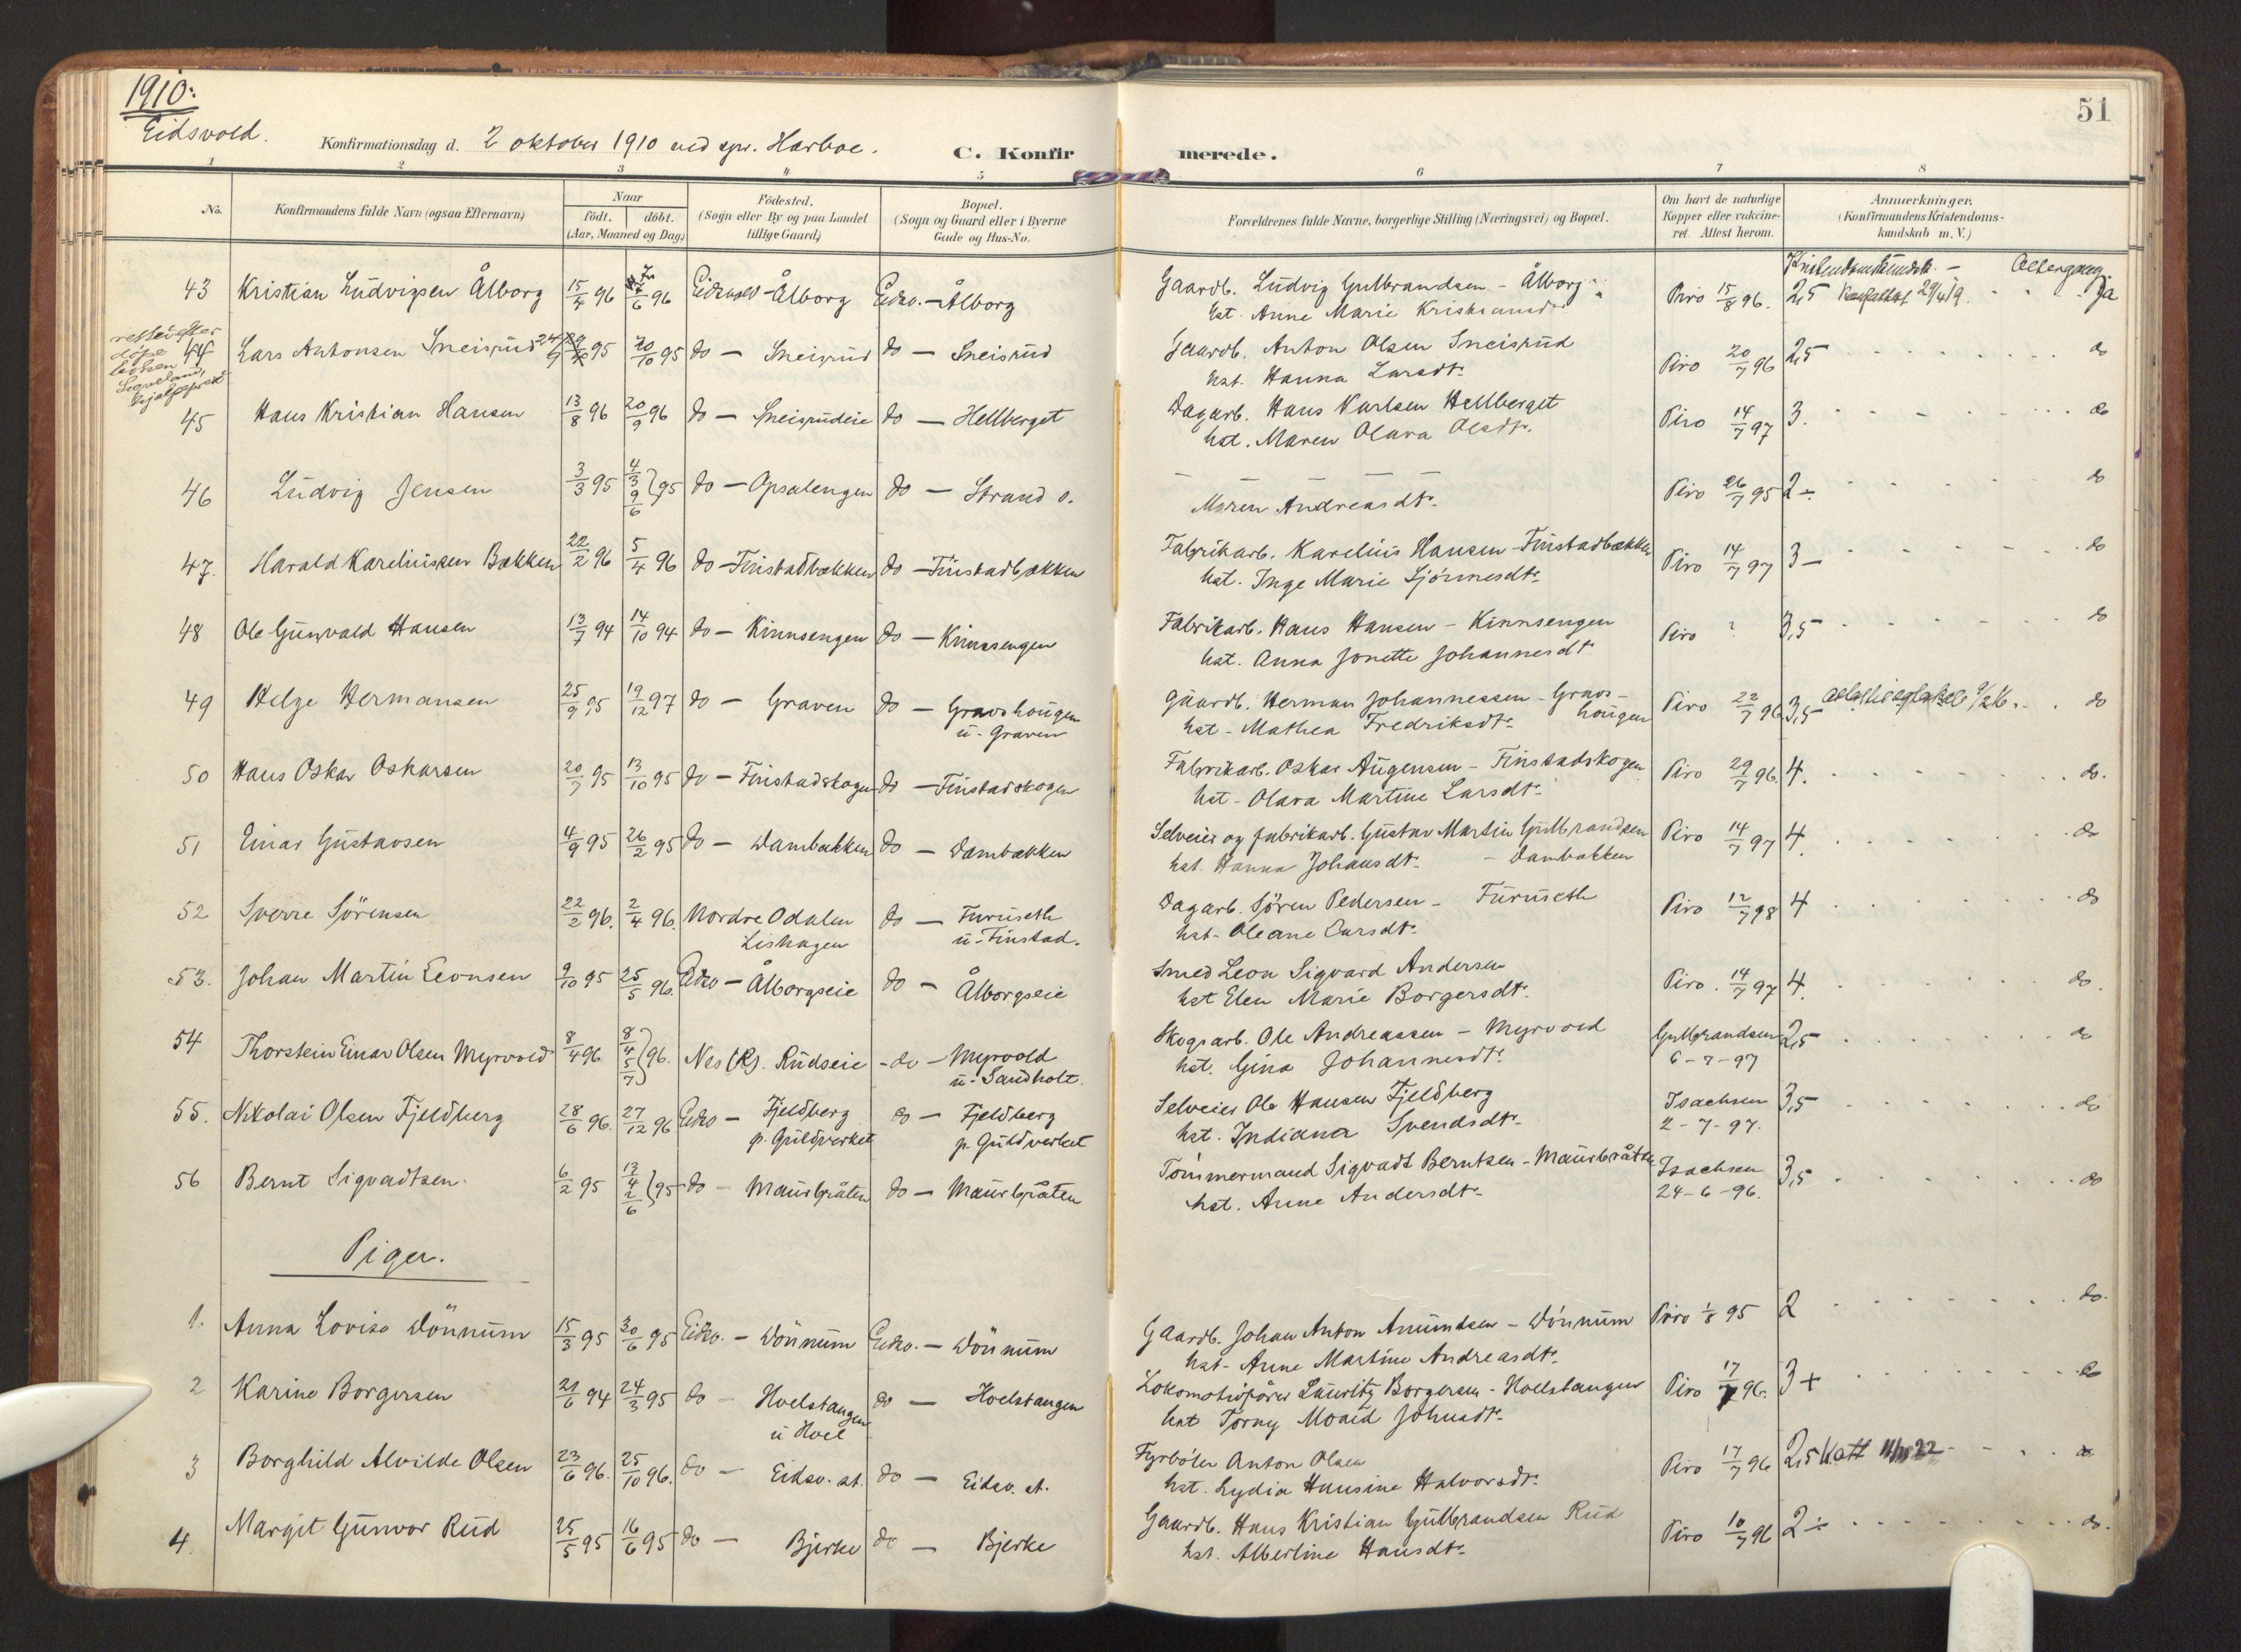 1910.
Eidsvold.
51
Konfirmationsdag d. 2 oktober 1910 ved spr. Harboe.
C. Konfirmerede.
1 2 3 4 5 6 7 8
No.
Konfirmandens fulde Navn (ogsaa Efternavn)
Naar
født. døbt.
(Aar, Maaned og Dag)
Födested.
(Sogn eller By og paa Landet
tillige Gaard)
Bopæl.
(Sogn og Gaard eller i Byerne
Gade og Hus-No.
Forældrenes fulde Navne, borgerlige Stilling (Næringsvei) og Bopæl.
Om havt de naturlige
Kopper eller vakcine-
ret. Attest herom.
Anmærkninger.
(Konfirmandens Kristendoms-
kundskab m. V.)
Kristendomskundsk. – Altergang.
43 Kristian Ludvigsen Ålborg 15/4 96 7/6 96 Eidsvold – Ålborg Eidsv. – Ålborg Gaardb. Ludvig Gulbrandsen – Ålborg Piro 15/8 96. 2,5 29/4 19. Ja
hst. Anne Marie
rettet efter
44 Lars Antonsen Sneisrud 95 20/10 95 do – Sneisrud do – Sneisrud Gaardb. Anton Olsen Sneisrud Piro 20/7 96 2,5 do
hst. Hanna Larsdt.
45 Hans Kristian Hansen 13/8 96 20/9 96 do – Sneisrudeie do – Hellberget Dagarb. Hans Karlsen Hellberget Piro 14/7 97 3. do
hst. Maren Olava Olsdt.
46 Ludvig Jensen 3/3 95 4/3 9/6 } 95 do – Opsalengen do – Strand o. – – – Piro 26/7 95 2÷ do
Maren Andreasdt.
47. Harald Kareliussen Bækken 22/2 96 5/4 96 do – Finstadbækken do – Finstadbækken Fabrikarb. Karelius Hansen Finstadbækken Piro 14/7 97 3– do
hst. Inge Marie
48 Ole Gunvald Hansen 13/7 94 14/10 94 do – Kinnsengen do – Kinnsengen Fabrikarb. Hans Hansen – Kinnsengen Piro ? 3,5 do
hst. Anna Jonette Johannesdt
49 Helge Hermansen 25/9 95 19/12 97 do – Graven do – Gravshougen Gaardb. Herman Johannessen – Gravs- Piro 22/7 96 3,5 do
u. Graven hst – Mathea Fredriksdt. hougen
50 Hans Oskar Oskarsen 20/7 95 13/10 95 do – Finstadskogen do – Finstadskogen Fabrikarb. Oskar Augensen – Finstadskogen Piro 29/7 96. 4. do.
hst – Olava Martine Larsdt.
51 Einar Gustavsen 4/9 95 26/2 95 do – Dambakken do – Dambakken Selveier og fabrikarb. Gustav Martin Gulbrandsen Piro 14/7 97 4. do
hst. Hanna Johansdt. – Dambakken
52 Sverre Sörensen 22/2 96. 2/4 96. Nordre Odalen do – Furuseth Dagarb. Sören Pedersen – Furuseth Piro 12/7 98 4 do
Lishagen u. Finstad. hst – Oleane Larsdt.
53. Johan Martin Leonsen 9/10 95 25/5 96. Eidsv – Ålborgseie do – Ålborgseie Smed Leon Sigvard Andersen Piro. 14/7 97 4. do.
hst Elen Marie Borgersdt.
54 Thorstein Einar Olsen Myrvold 8/4 96. 8/4 5/7 } 96. Nes (R). Rudseie – do – Myrvold Skogsarb. Ole Andreassen – Myrvold Gulbrandsen 2,5 do
u. Sandholt. hst. Gina Johannesdt. 6–7–97
55. Nikolai Olsen Fjeldberg 28/6 96. 27/12 96 Eidsv – Fjeldberg do – Fjeldberg Selveier Ole Hansen Fjeldberg Isachsen 3,5 do
p. Guldverket p. Guldverket hst. Indiana Svendsdt. 2–7–97.
56 Bernt Sigvadtsen. 6/2 95 13/4 2/6 } 95 do – Maurbråten do – Maurbråten Tömmermand Sigvadt Berntsen – Maurbråten Isachsen 3,5 do
hst. Anne Andersdt. 24–6–96.
Piger.
1. Anna Lovise Dönnum 15/3 95 30/6 95 Eidsv. – Dönnum Eidsv. – Dönnum Gaardb. Johan Anton Amundsen – Dönnum Piro 1/8 95 2 do.
hst – Anne Martine Andreasdt.
2 Karine Borgersen 21/6 94 24/3 95 do – Hoelstangen do – Hoelstangen Lokomotivförer Lauritz Borgersen – Hoelstangen Piro 17/7 96. 3+ do
u Hoel hst Torny Johnsdt.
3 Borghild Alvilde Olsen 23/6 96. 25/10 96. do – Eidsv. st. do – Eidsv. st. Fyrböter Anton Olsen Piro 17/7 96 2,5 do
hst. Lydia Hansine Halvorsdt.
4. Margit Gunvor Rud 25/5 95 16/6 95 do – Bjerke do – Bjerke Gaardb. Hans Kristian Gulbrandsen Rud Piro 10/7 96 2÷ do.
hst. Albertine Hansdt.